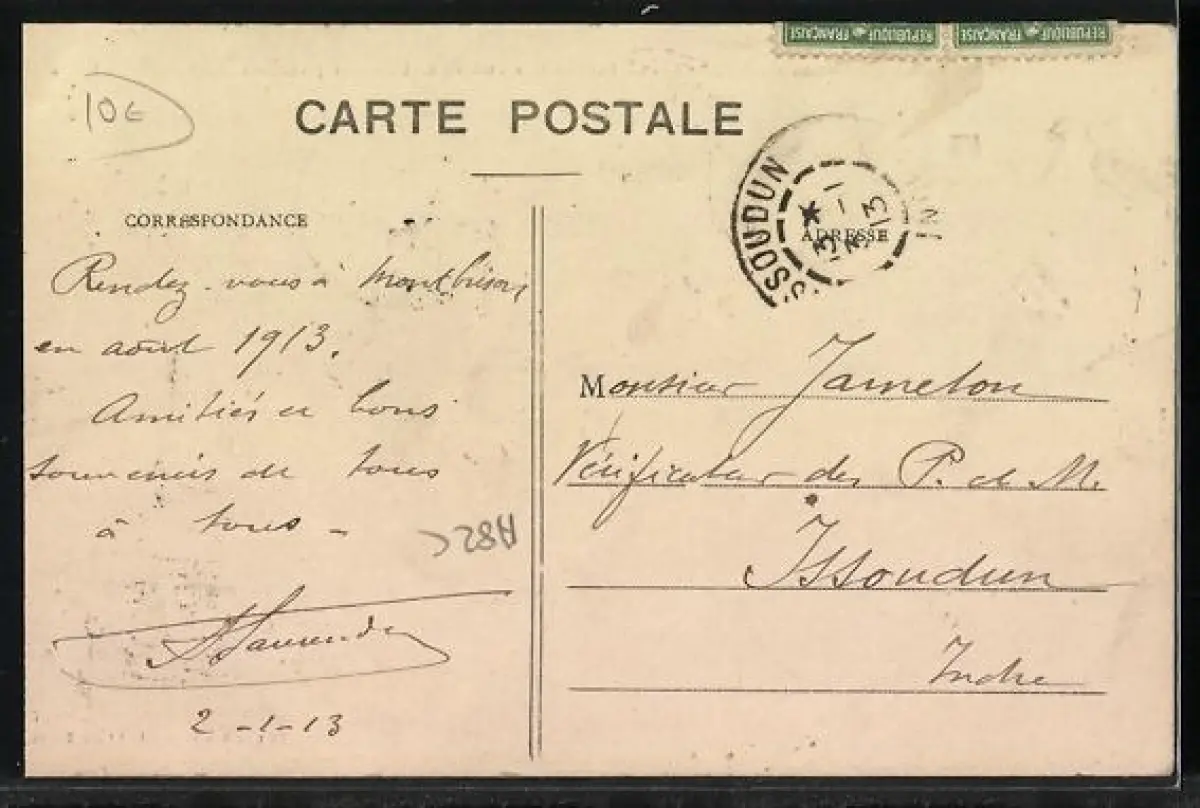 REPUBLIQUE FRANÇAISE REPUBLIQUE FRANÇAISE
10€
CARTE POSTALE
ISSOUDUN
3 - 1
13
CORRESPONDANCE
ADRESSE
Rendez-vous à Montbrison
en août 1913.
Amitiés et bons
souvenirs de tous
à tous -
A82C
2-1-13
Monsieur Jameton
Vérificateur des P. et M.
Issoudun
Indre